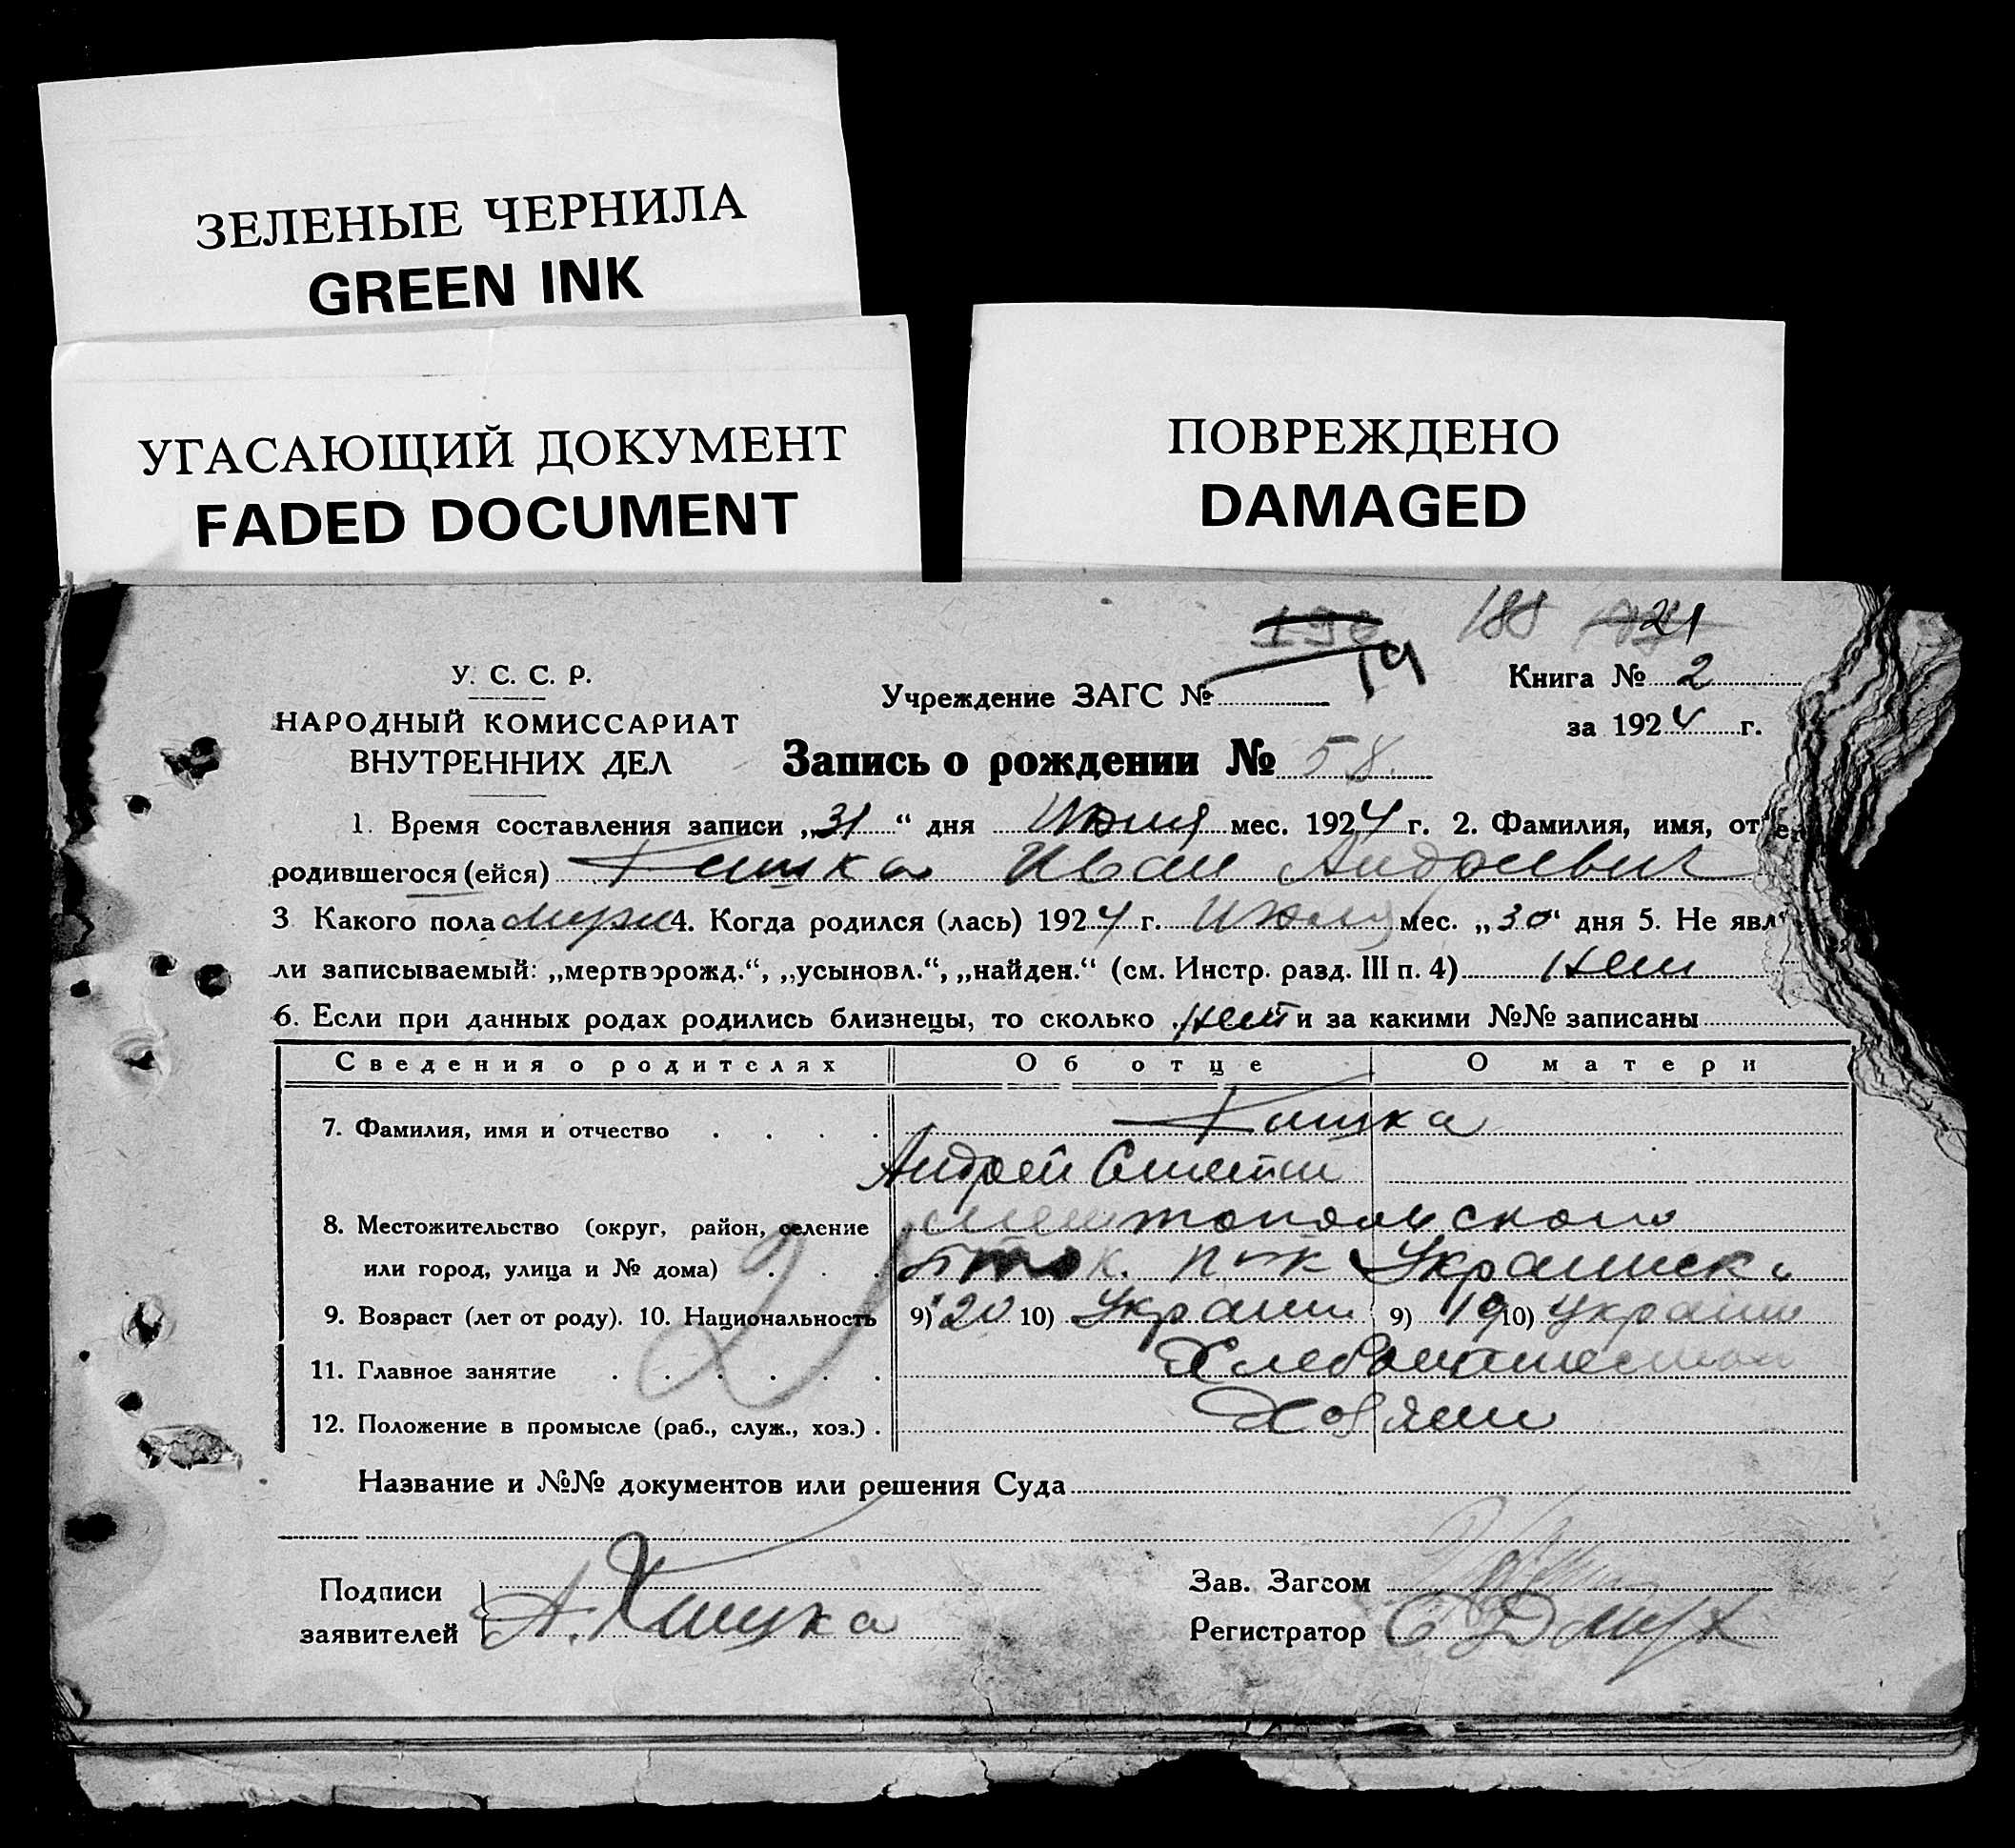 ЗЕЛЕНЫЕ ЧЕРНИЛА
GREEN INK
УГАСАЮЩИЙ ДОКУМЕНТ
FADED DOCUMENT
ПОВРЕЖДЕНО
DAMAGED
188 21
У. С. С. Р.
НАРОДНЫЙ КОМИССАРИАТ
ВНУТРЕННИХ ДЕЛ
Учреждение ЗАГС № 19
Книга № 2
за 1924 г.
Запись о рождении № 58.
1. Время составления записи „31“ дня Июля мес. 1924 г. 2. Фамилия, имя, от
родившегося (ейся) Кишка Иван Андреевич
3 Какого пола мужс 4. Когда родился (лась) 1924 г. Июля мес. „30“ дня 5. Не явл
ли записываемый: „мертворожд.“, „усыновл.“, „найден.“ (см. Инстр. разд. III п. 4) нет
6. Если при данных родах родились близнецы, то сколько нет и за какими №№ записаны
Сведения о родителях Об отце О матери
7. Фамилия, имя и отчество Кишка
Андрей
8. Местожительство (округ, район, селение
или город, улица и № дома) Украинск
9. Возраст (лет от роду). 10. Национальность 9) 20 10) Украин 9) 19 10) Украин
11. Главное занятие
12. Положение в промысле (раб., служ., хоз.) Хозяин
Название и №№ документов или решения Суда
Подписи
заявителей А. Кишка
Зав. Загсом
Регистратор